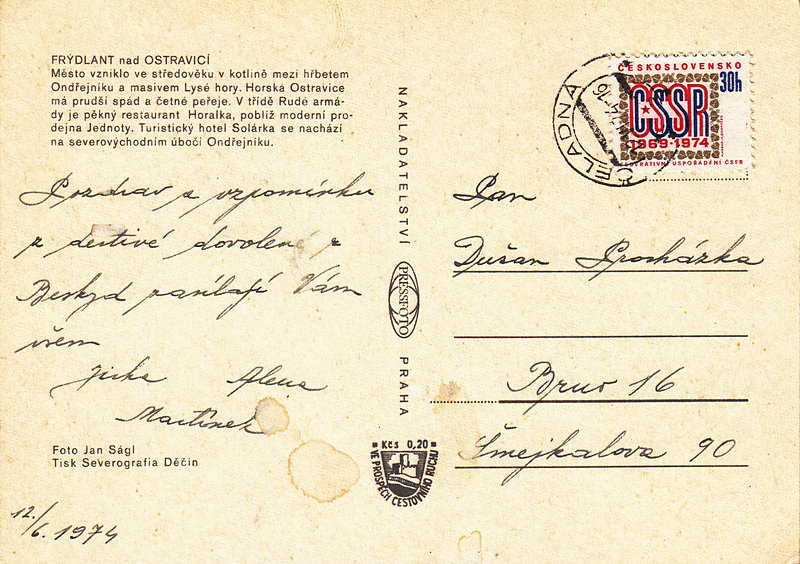 FRÝDLANT nad OSTRAVICÍ
Město vzniklo ve středověku v kotlině mezi hřbetem
Ondřejníku a masivem Lysé hory. Horská Ostravice
má prudší spád a četné peřeje. V třídě Rudé armá-
dy je pěkný restaurant Horalka, poblíž moderní pro-
dejna Jednoty. Turistický hotel Solárka se nachází
na severovýchodním úbočí Ondřejníku.
Pozdrav a vzpomínku
z deštivé dovolené z
Beskyd zasílají Vám
všem
Jirka Alena
Martínek
Foto Jan Ságl
Tisk Severografia Děčín
12./6. 1974
NAKLADATELSTVÍ
PRESSFOTO
PRAHA
Kčs 0,20
VE PROSPĚCH CESTOVNÍHO RUCHU
ČELADNÁ
ČESKOSLOVENSKO
30h
ČSSR
1969-1974
FEDERATIVNÍ USPOŘÁDÁNÍ ČSSR
Pan
Dušan Procházka
Brno 16
Šmejkalova 90